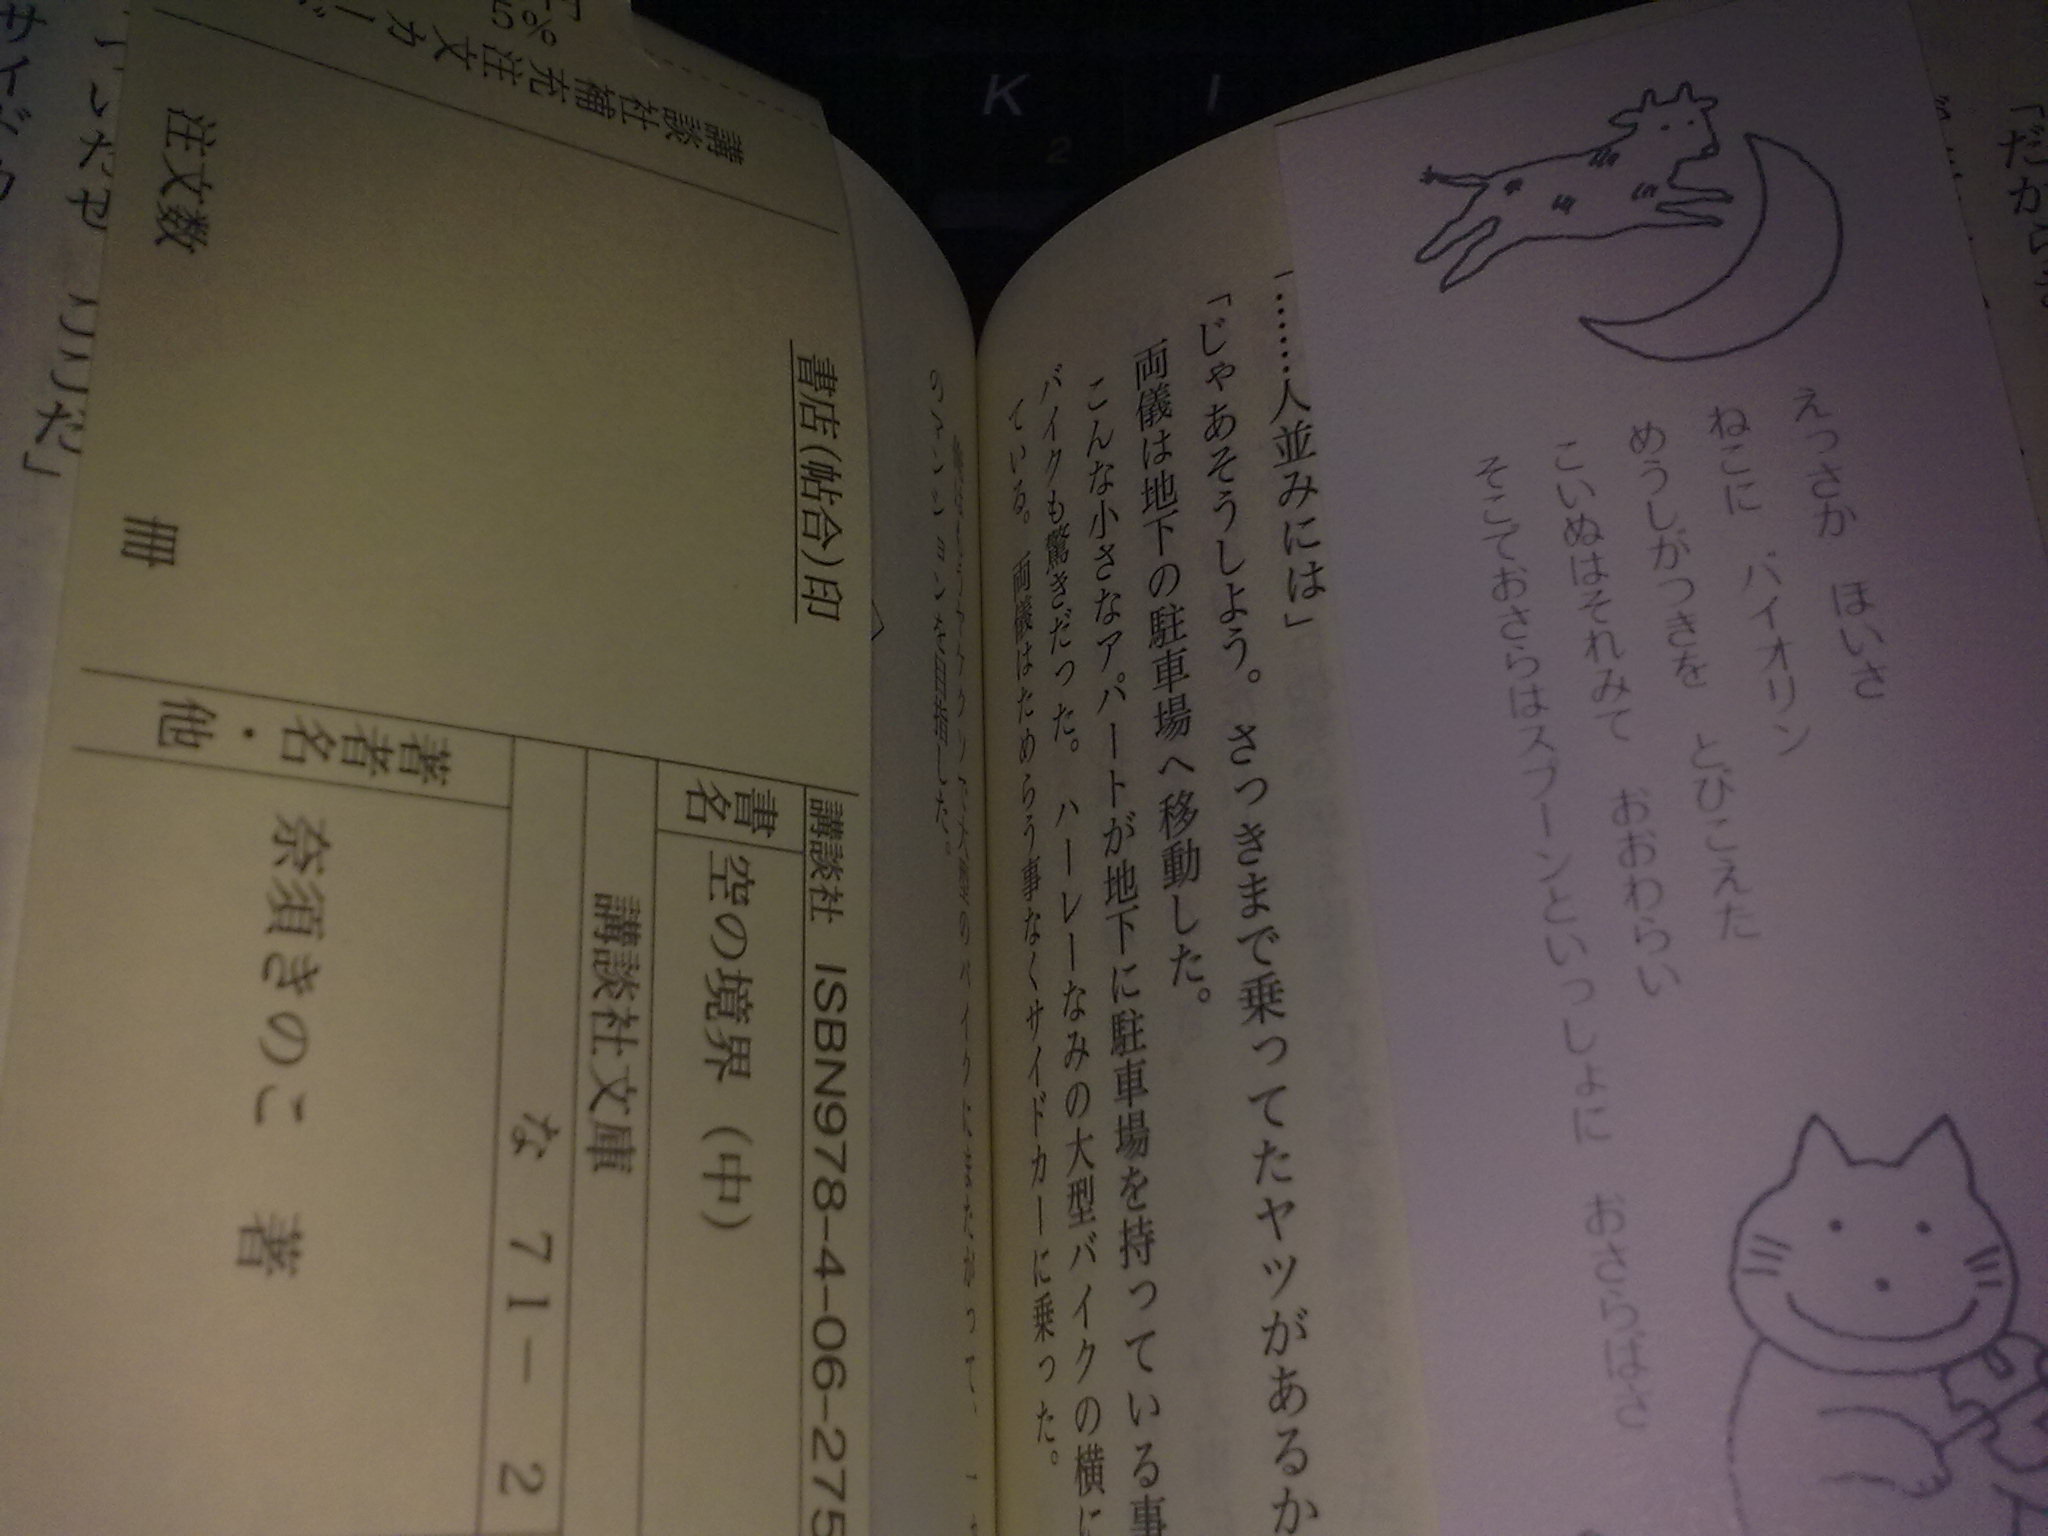 えっさか ほいさ
ねこに バイオリン
めうしがつきを とびこえた
こいぬはそれみて おおわらい
そこでおさらはスプーンといっしょに おさらばさ
「……人並みには」
「じゃあそうしよう。さっきまで乗ってたヤツがあるか
両儀は地下の駐車場へ移動した。
こんな小さなアパートが地下に駐車場を持っている事
バイクも驚きだった。ハーレーなみの大型バイクの横に
ている。両儀はためらう事なくサイドカーに乗った。
講談社補充注文カ
5%
注文数
冊
書店(帖合)印
講談社 ISBN978-4-06-275
書名
空の境界(中)
講談社文庫
な 71-2
著者名・他
奈須きのこ 著
ここだ」
K
2
I